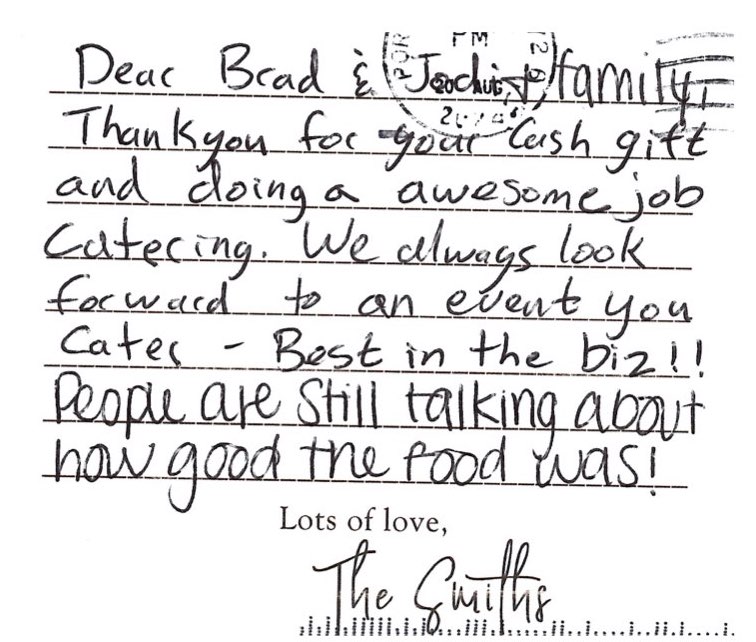 Dear Brad & family,
Thankyou for your Cash gift
and doing a awesome job
Catering. We always look
forward to an event you
Cater - Best in the biz!!
People are still talking about
how good the food was!
Lots of love,
The Smiths